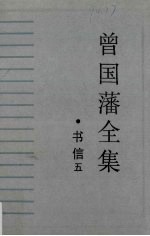 曾国藩全集
·书信五